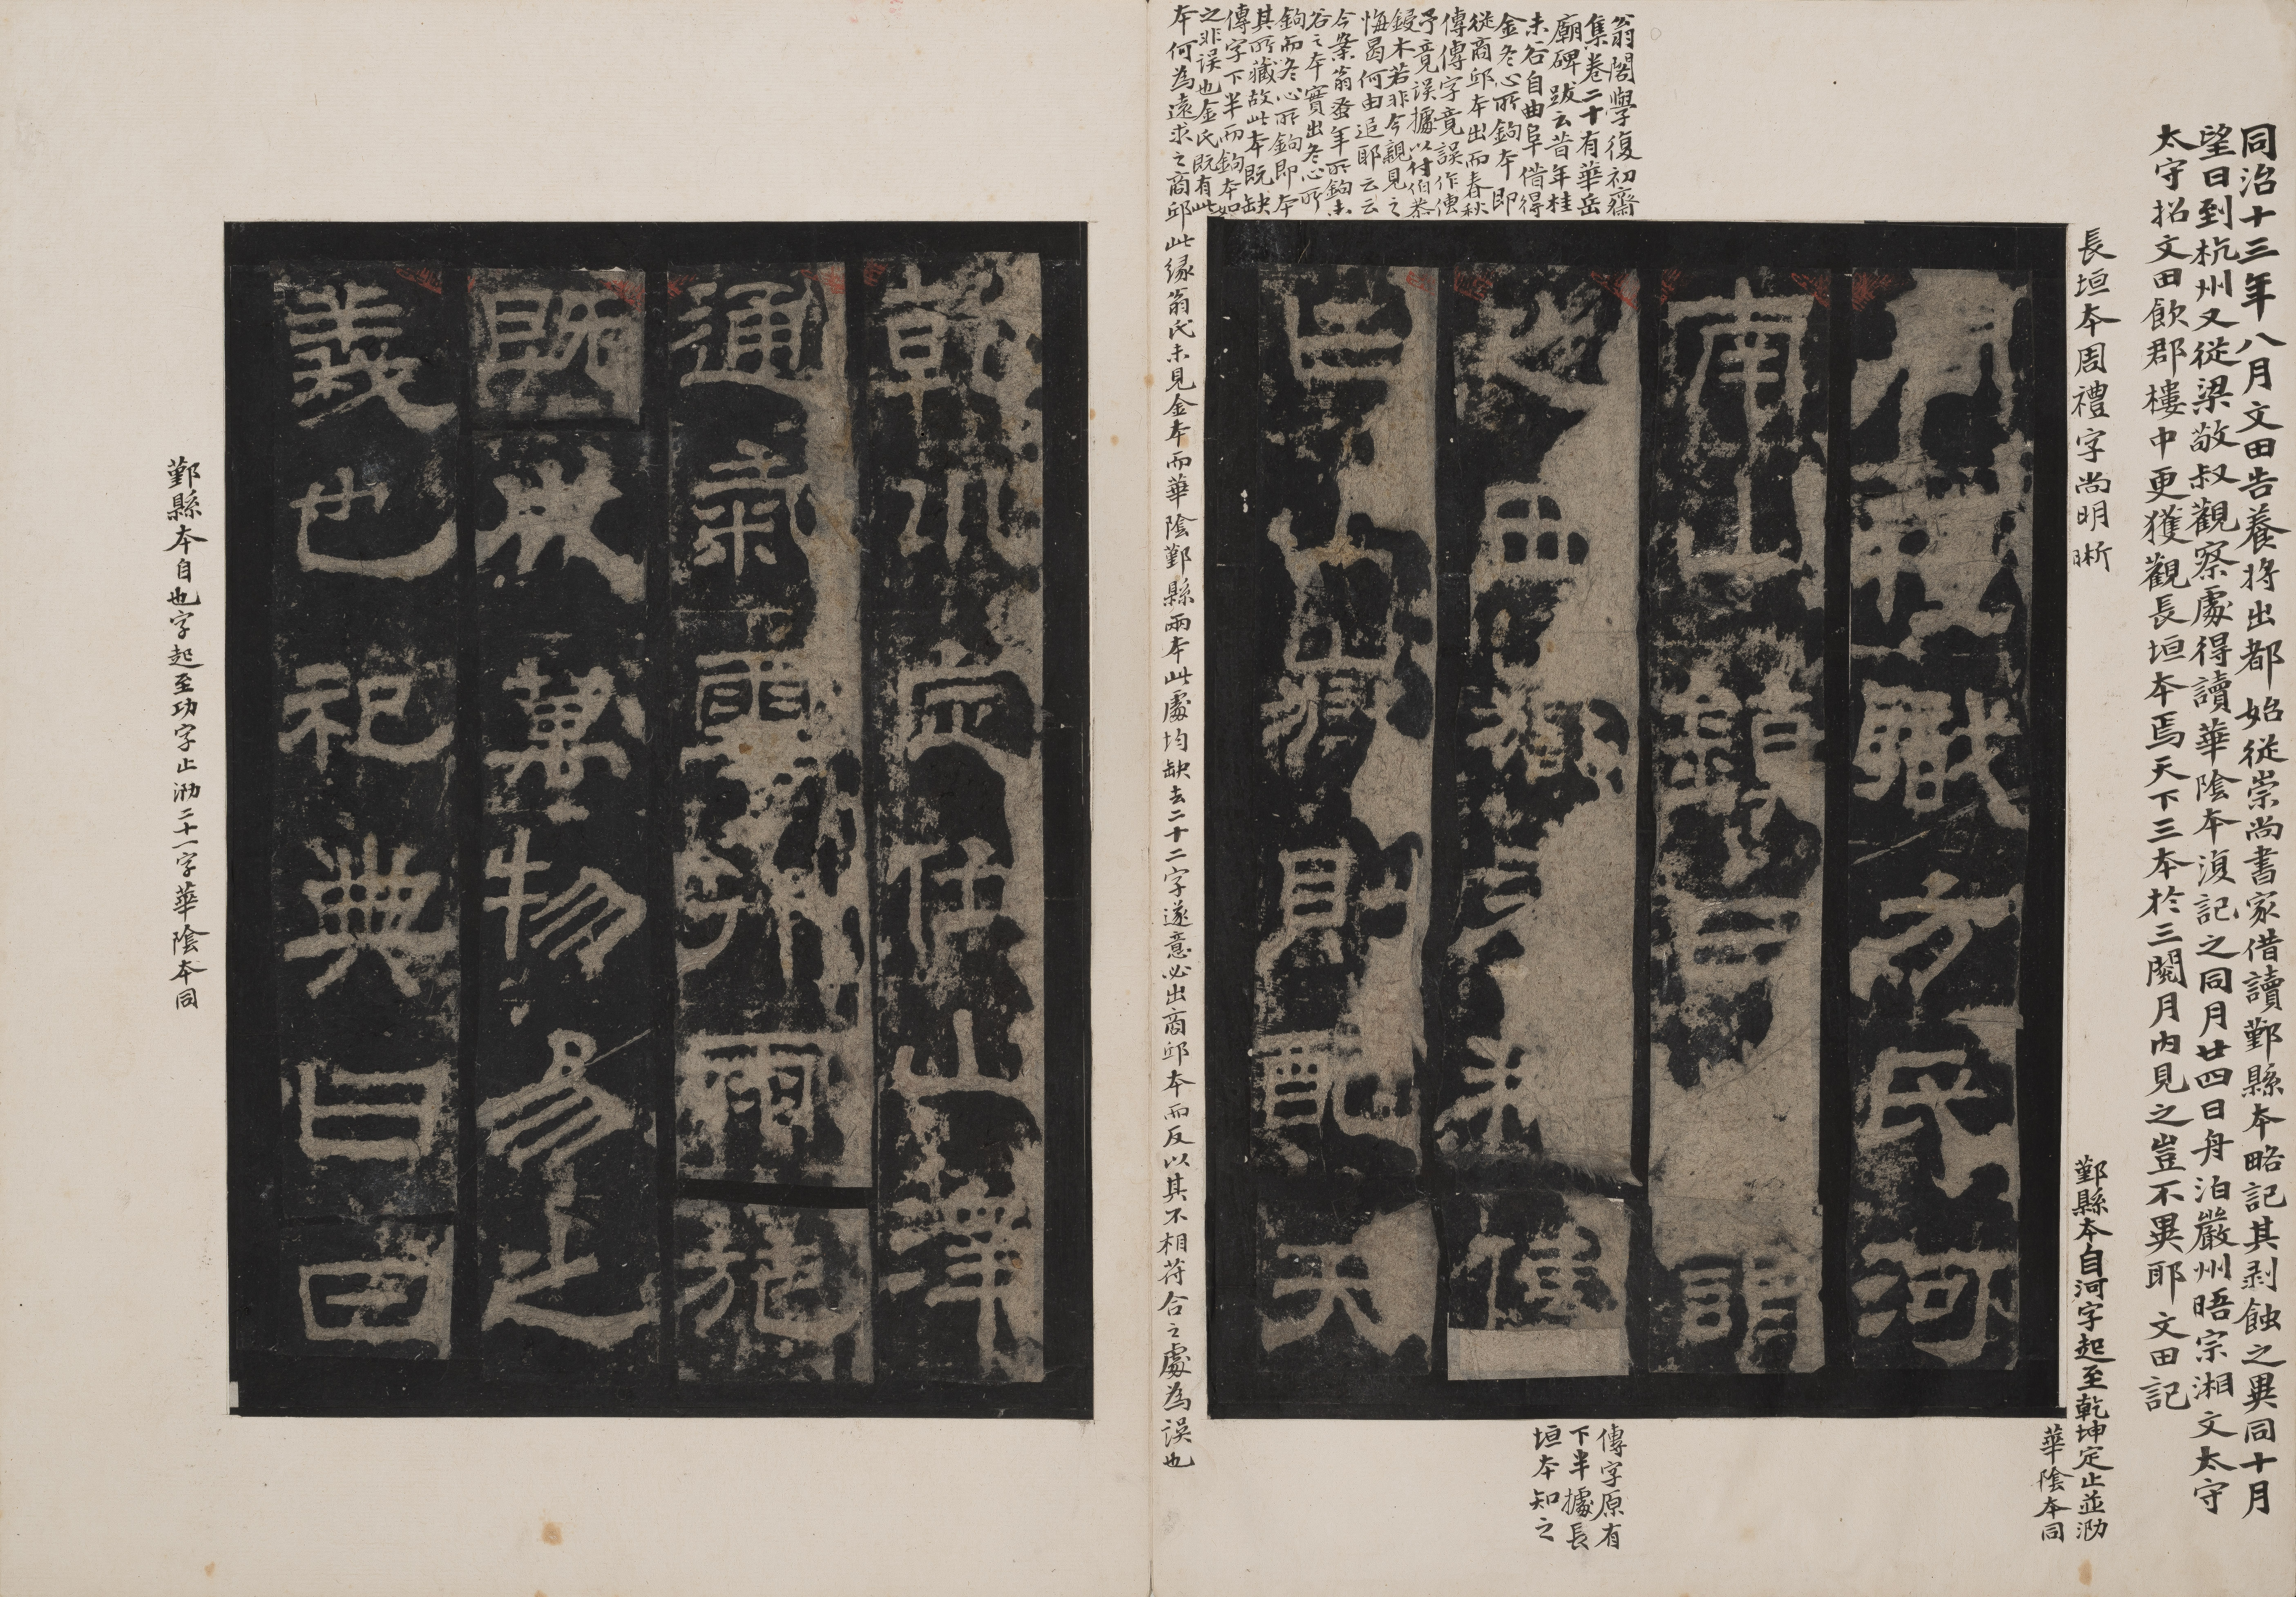 同治十三年八月文田告養將出都始從崇尚書家借讀鄞縣本略記其剥蝕之異同十月
望日到杭州又從梁敬叔觀察處得讀華陰本湏記之同月廿四日舟泊嚴州晤宗湘文太守
太守招文田飲郡樓中更獲觀長垣本焉天下三本於三閱月內見之豈不異耶文田記
長垣本周禮字尚明晰
鄞縣本自河字起至乾坤定止並泐
華陰本同
周禮職方氏河
南山鎮曰謂
之西嶽春傳
曰山嶽則配天
乾坤定位山澤
通氣雲行雨施
既成萬物易之
義也祀典曰日
翁閣學復初齋
集卷二十有華岳
廟碑跋云昔年桂
未谷自曲阜借得
金冬心所鉤本即
從商邱本出而春秋
傳傳字竟誤作傳
予竟誤據以付伯恭
鋟木若非今親見之
悔曷何由追耶云云
今案翁蚤年所鉤未
谷之本實出冬心所
鉤而冬心所鉤即本
其所藏故此本既缺
傳字下半而鉤本如
之非误也金氏既有此
本何為遠求之商邱此緣翁氏未見金本而華陰鄞縣兩本此處均缺去二十二字遂意必出商邱本而反以其不相符合之處為误也
傳字原有
下半據長
垣本知之
鄞縣本自也字起至功字止泐二十一字華陰本同